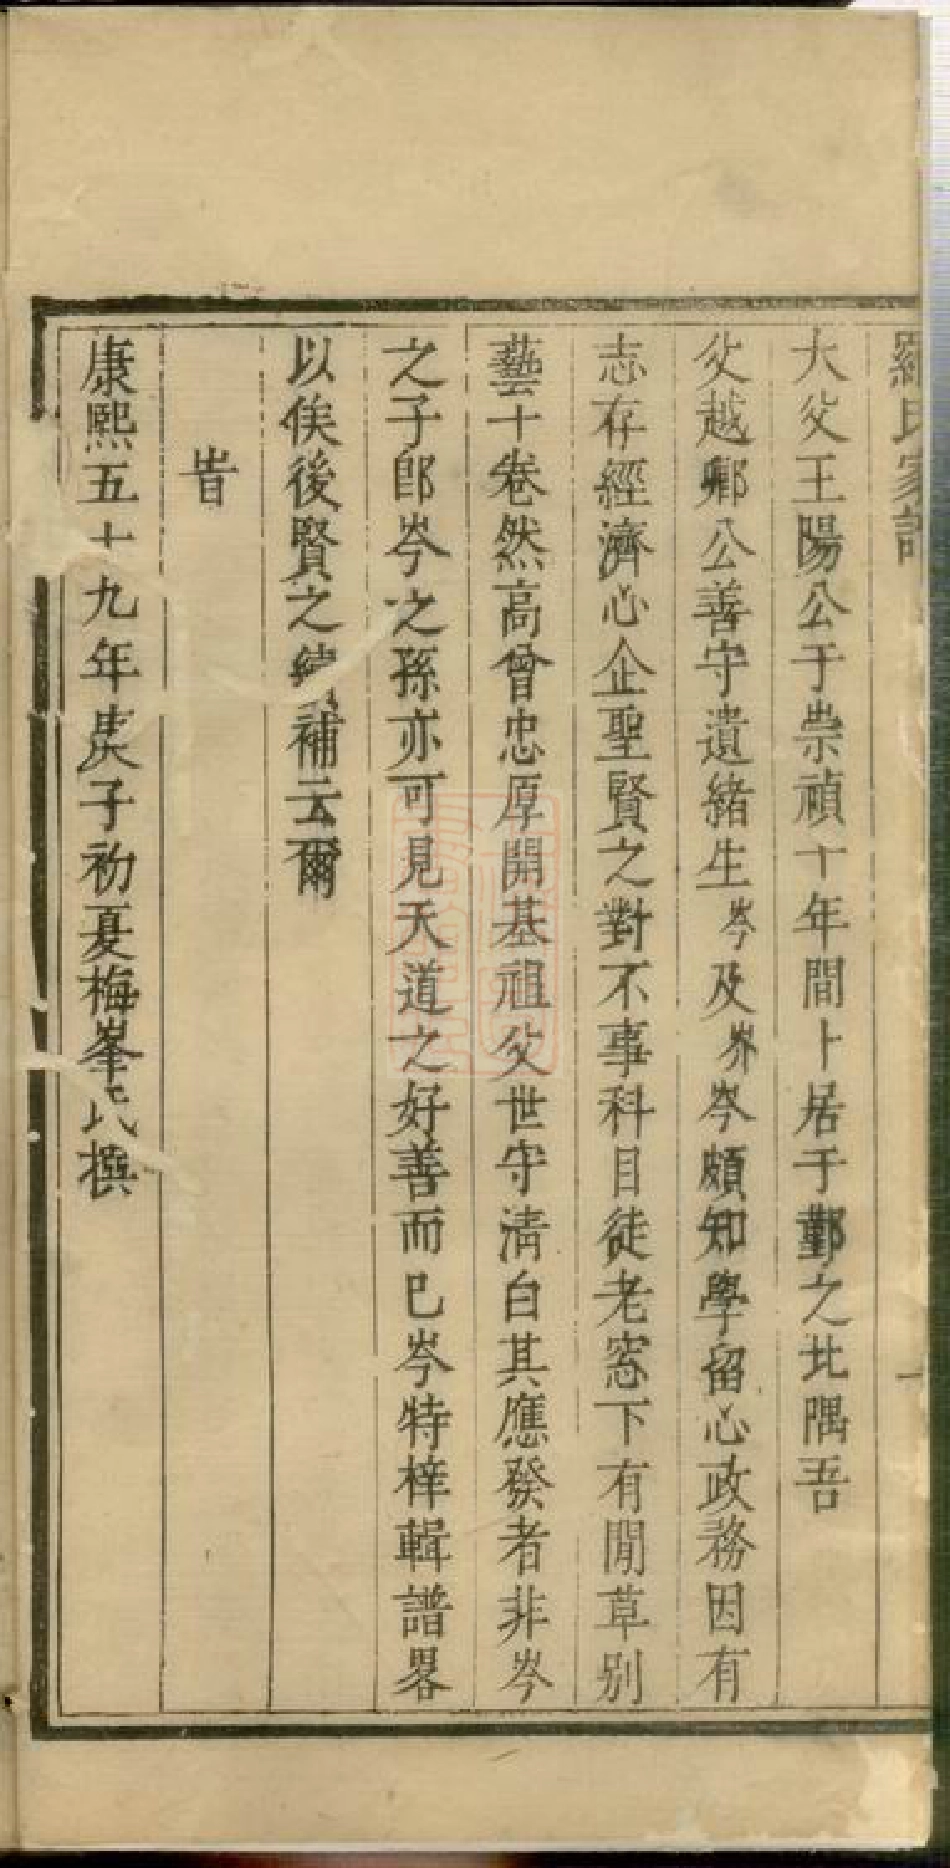 羅氏家譜
一
大父王陽公于崇禎十年間卜居于鄞之北隅吾
父越鄉公善守遺緒生岑及岕岑頗知學留心政務因有
志存經濟心企聖賢之對不事科目徒老窓下有閒草别
藝十卷然高曾忠厚開基祖父世守清白其應發者非岑
之子郎岑之孫亦可見天道之好善而已岑特梓輯譜畧
以俟後賢之續補云爾
旹
康熙五十九年庚子初夏梅峯氏撰